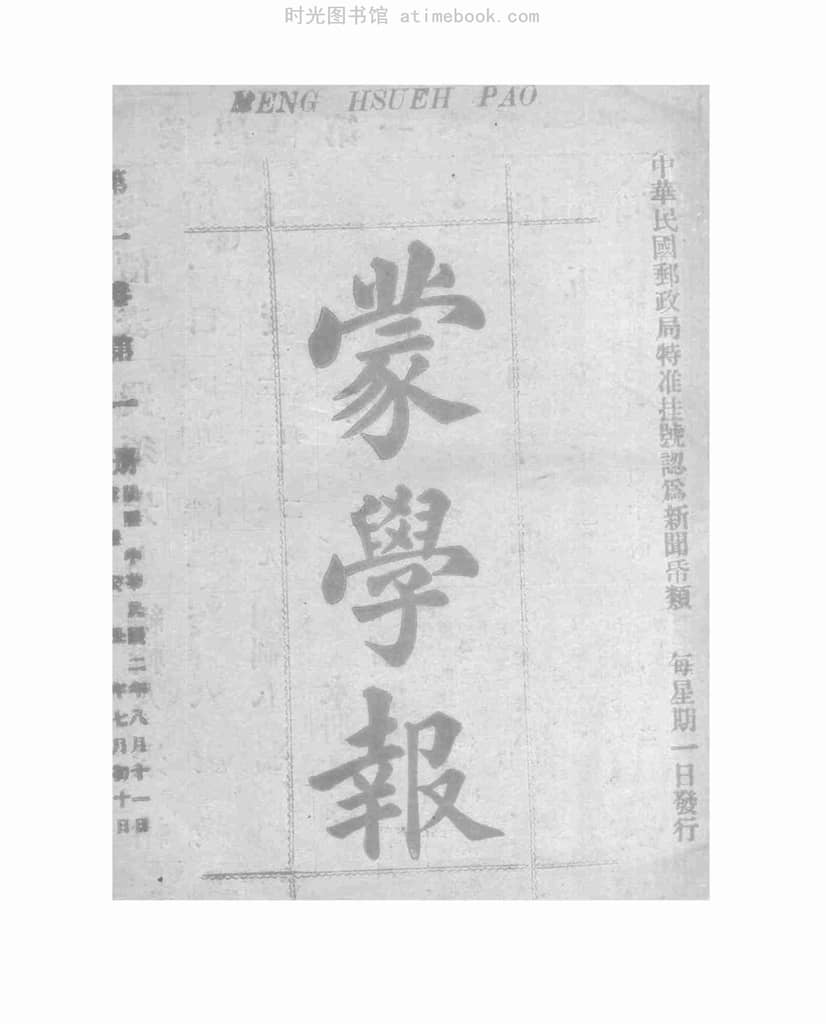 时光图书馆 atimebook.com
MENG HSUEH PAO
中華民國郵政局特准挂號認爲新聞帋類 每星期一日發行
蒙學報
第一卷第一册
中華民國二年八月十一日
年七月初十日